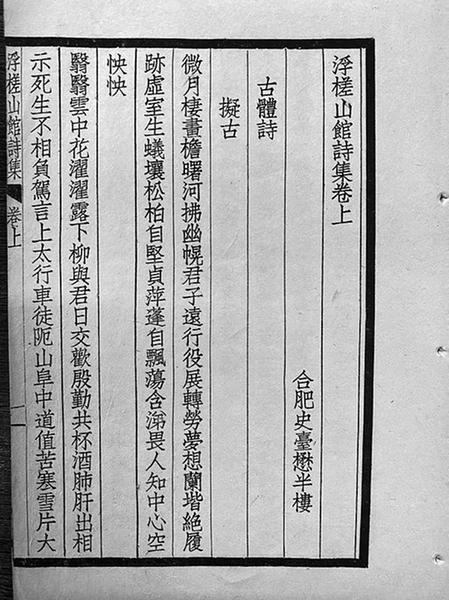 浮槎山館詩集卷上
合肥史臺懋半樓
古體詩
擬古
微月棲畫檐曙河拂幽幌君子遠行役展轉勞夢想蘭堦絶履
跡虛室生蟻壤松柏自堅貞萍蓬自飄蕩含涕畏人知中心空
怏怏
翳翳雲中花濯濯露下柳與君日交歡殷勤共杯酒肺肝出相
示死生不相負駕言上太行車徒阨山阜中道值苦寒雪片大
浮槎山館詩集
卷上
一